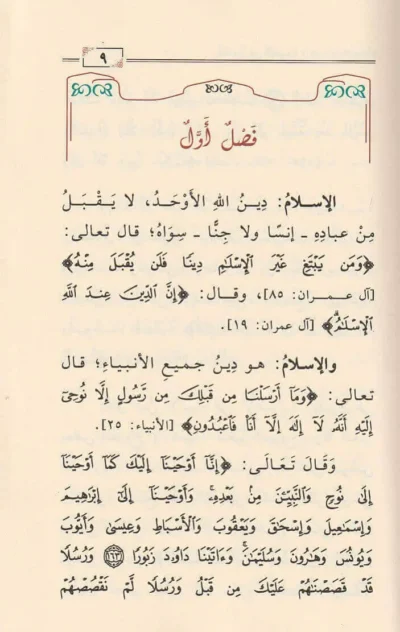 ٩
فَصْلٌ أَوَّلٌ
الإسلامُ: دِينُ اللهِ الأَوْحَدُ، لا يَقْبَلُ
مِنْ عبادِهِ - إنسًا ولا جِنًّا - سِوَاهُ؛ قال تعالى:
﴿وَمَن يَبْتَغِ غَيْرَ الْإِسْلَٰمِ دِينًا فَلَن يُقْبَلَ مِنْهُ﴾
[آل عمران: ٨٥]، وقال: ﴿إِنَّ الدِّينَ عِندَ اللَّهِ
الْإِسْلَٰمُ﴾ [آل عمران: ١٩].
والإسلامُ: هو دِينُ جميعِ الأنبياءِ؛ قال
تعالى: ﴿وَمَا أَرْسَلْنَا مِن قَبْلِكَ مِن رَّسُولٍ إِلَّا نُوحِي
إِلَيْهِ أَنَّهُ لَا إِلَٰهَ إِلَّا أَنَا فَاعْبُدُونِ﴾ [الأنبياء: ٢٥].
وَقَالَ تَعَالَى: ﴿إِنَّا أَوْحَيْنَا إِلَيْكَ كَمَا أَوْحَيْنَا
إِلَىٰ نُوحٍ وَالنَّبِيِّنَ مِن بَعْدِهِ وَأَوْحَيْنَا إِلَىٰ إِبْرَٰهِيمَ
وَإِسْمَٰعِيلَ وَإِسْحَٰقَ وَيَعْقُوبَ وَالْأَسْبَاطِ وَعِيسَىٰ وَأَيُّوبَ
وَيُونُسَ وَهَٰرُونَ وَسُلَيْمَٰنَ وَءَاتَيْنَا دَاوُدَ زَبُورًا ١٦٣ وَرُسُلًا
قَدْ قَصَصْنَٰهُمْ عَلَيْكَ مِن قَبْلُ وَرُسُلًا لَّمْ نَقْصُصْهُمْ